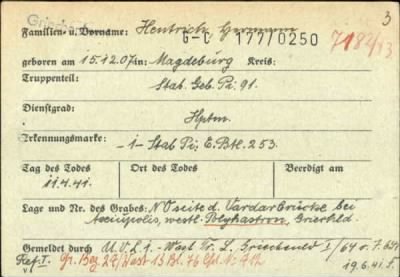 Griechenland 3
Familien- u. Vorname: Hentrich Hermann
G-C 177/0250
7182/43
geboren am 15.12.07 in: Magdeburg Kreis:
Truppenteil:
Stab. Geb. Pi. 91.
Dienstgrad:
Hptm.
Erkennungsmarke:
-1- Stab Pi. E. Btl. 253.
Tag des Todes Ort des Todes Beerdigt am
11.4.41.
Lage und Nr. des Grabes: NO seite d. Vardarbrücke bei
westl. Polykastron, Griechld.
Gemeldet durch U.V.L. 1. Wast Gr. L. Griechenld I/64 v. 7.6.41
Ref. I. Gr. Bez. 27/Wast 13 Bl. 76 Lfd. Nr. 712
19.6.41.